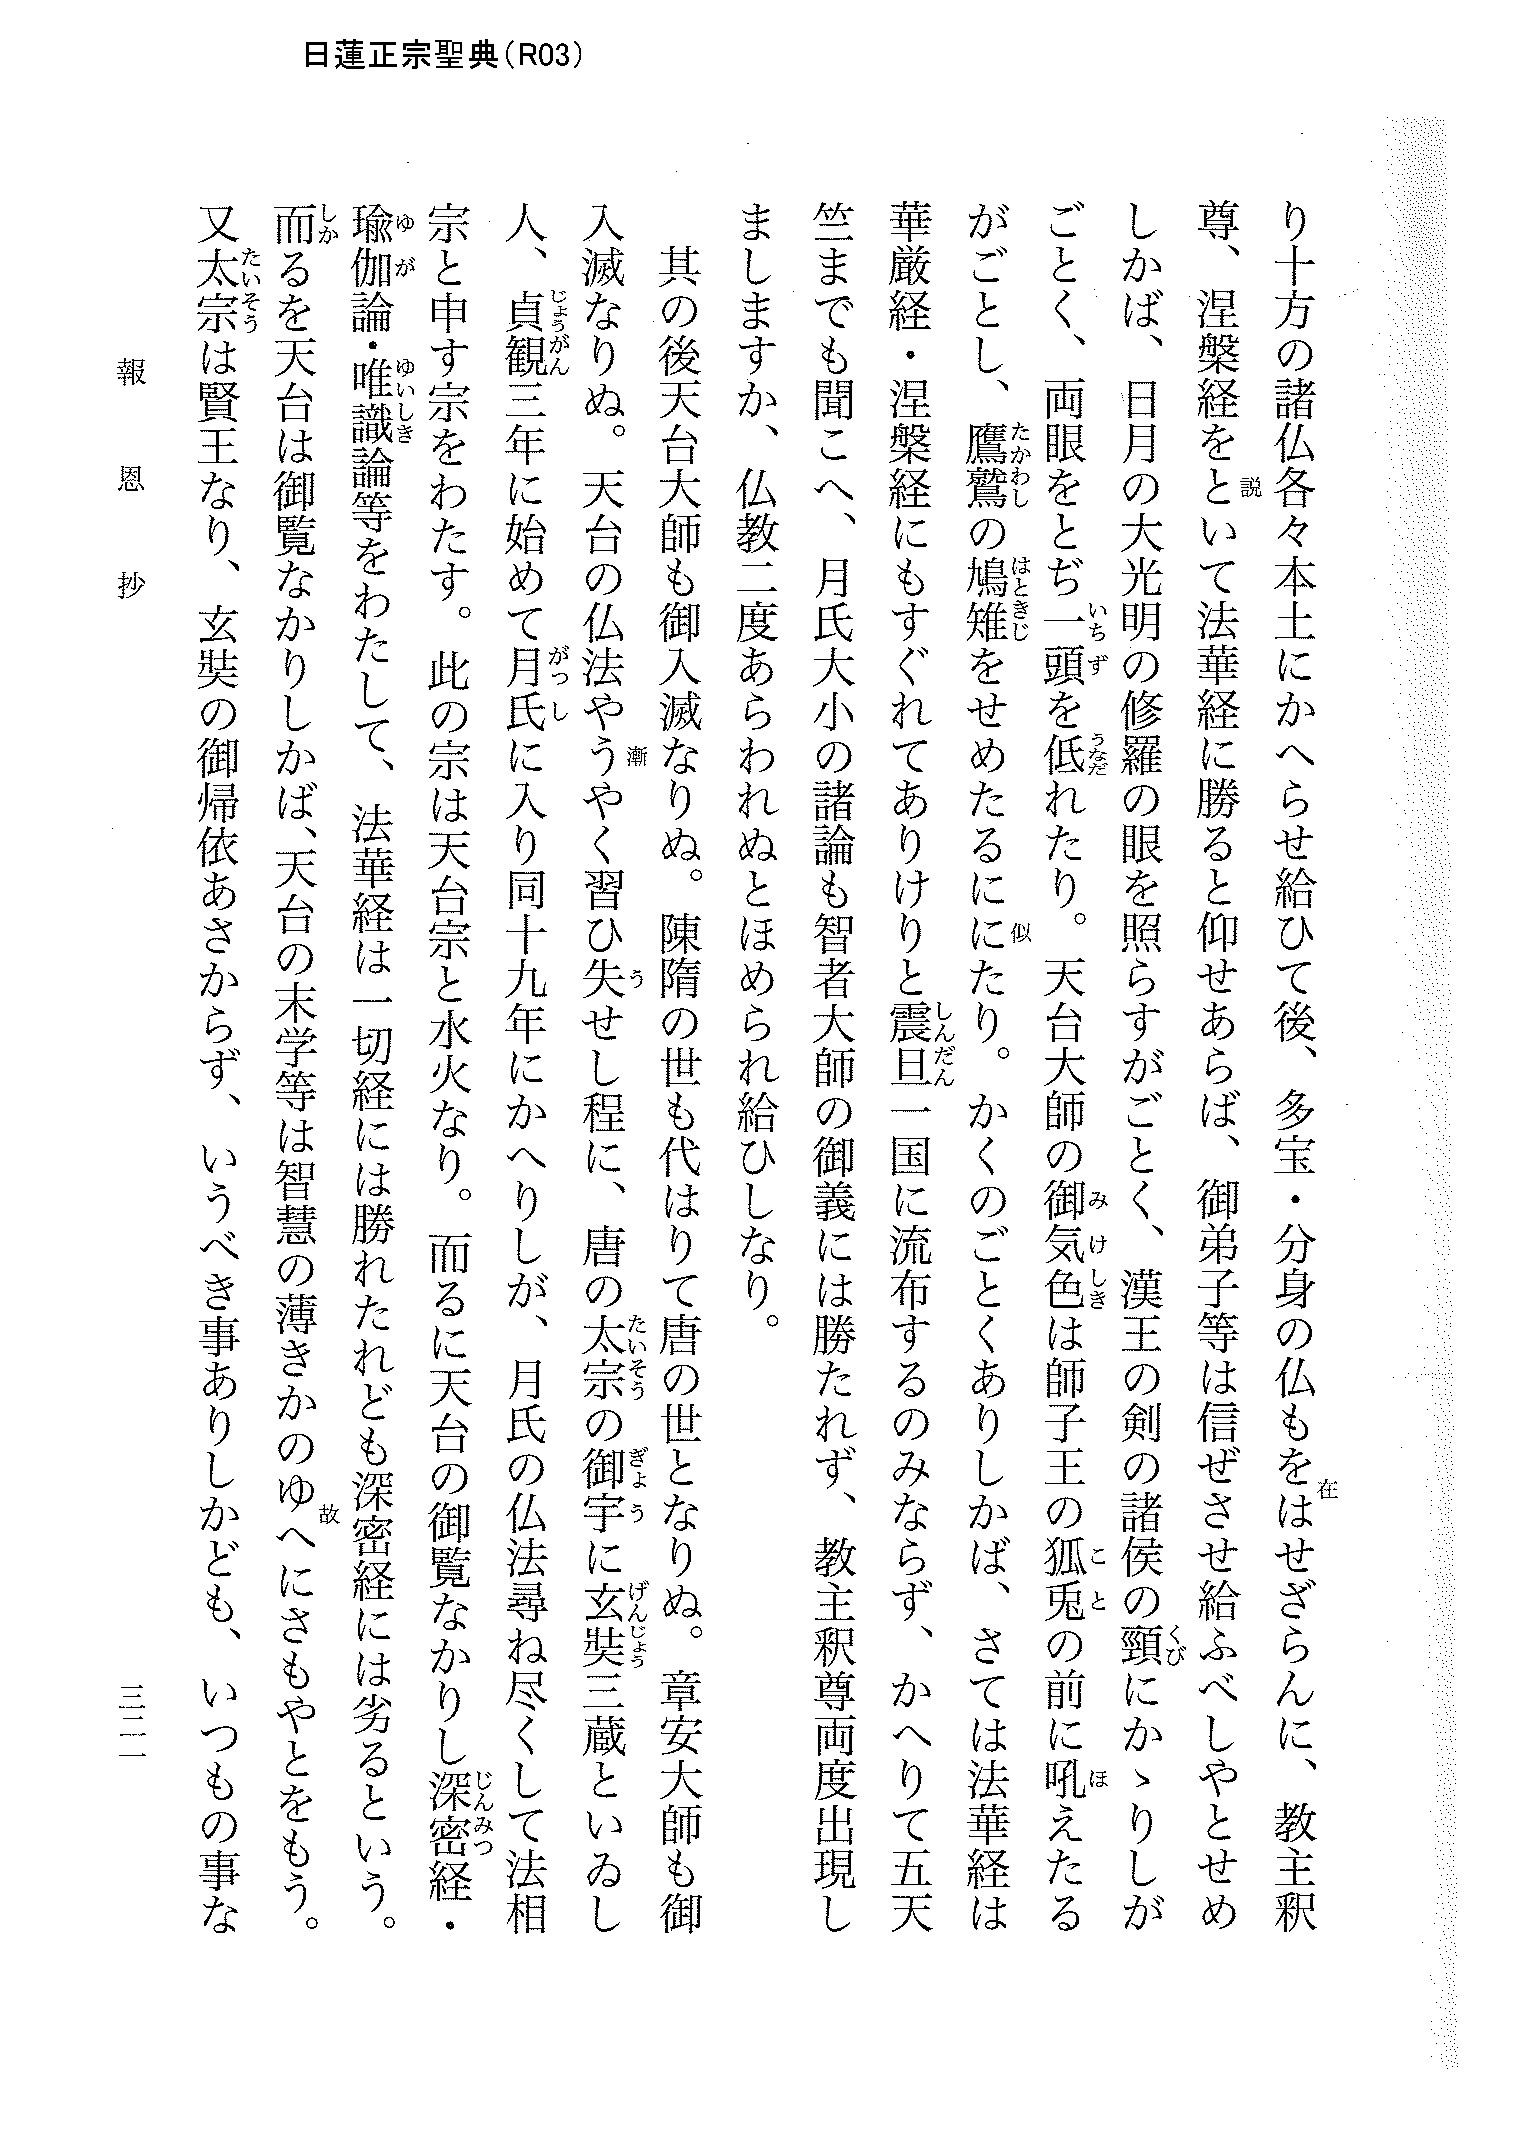 日蓮正宗聖典（R03）
り十方の諸仏各々本土にかへらせ給ひて後、多宝・分身の仏もをはせざらんに、教主釈
尊、涅槃経をといて法華経に勝ると仰せあらば、御弟子等は信ぜさせ給ふべしやとせめ
しかば、日月の大光明の修羅の眼を照らすがごとく、漢王の剣の諸侯の頸にかゝりしが
ごとく、両眼をとぢ一頭を低れたり。天台大師の御気色は師子王の狐兎の前に吼えたる
がごとし、鷹鷲の鳩雉をせめたるににたり。かくのごとくありしかば、さては法華経は
華厳経・涅槃経にもすぐれてありけりと震旦一国に流布するのみならず、かへりて五天
竺までも聞こへ、月氏大小の諸論も智者大師の御義には勝たれず、教主釈尊両度出現し
ましますか、仏教二度あらわれぬとほめられ給ひしなり。
其の後天台大師も御入滅なりぬ。陳隋の世も代はりて唐の世となりぬ。章安大師も御
入滅なりぬ。天台の仏法やうやく習ひ失せし程に、唐の太宗の御宇に玄奘三蔵といゐし
人、貞観三年に始めて月氏に入り同十九年にかへりしが、月氏の仏法尋ね尽くして法相
宗と申す宗をわたす。此の宗は天台宗と水火なり。而るに天台の御覧なかりし深密経・
瑜伽論・唯識論等をわたして、法華経は一切経には勝れたれども深密経には劣るという。
而るを天台は御覧なかりしかば、天台の末学等は智慧の薄きかのゆへにさもやとをもう。
又太宗は賢王なり、玄奘の御帰依あさからず、いうべき事ありしかども、いつもの事な
報恩抄
三二一